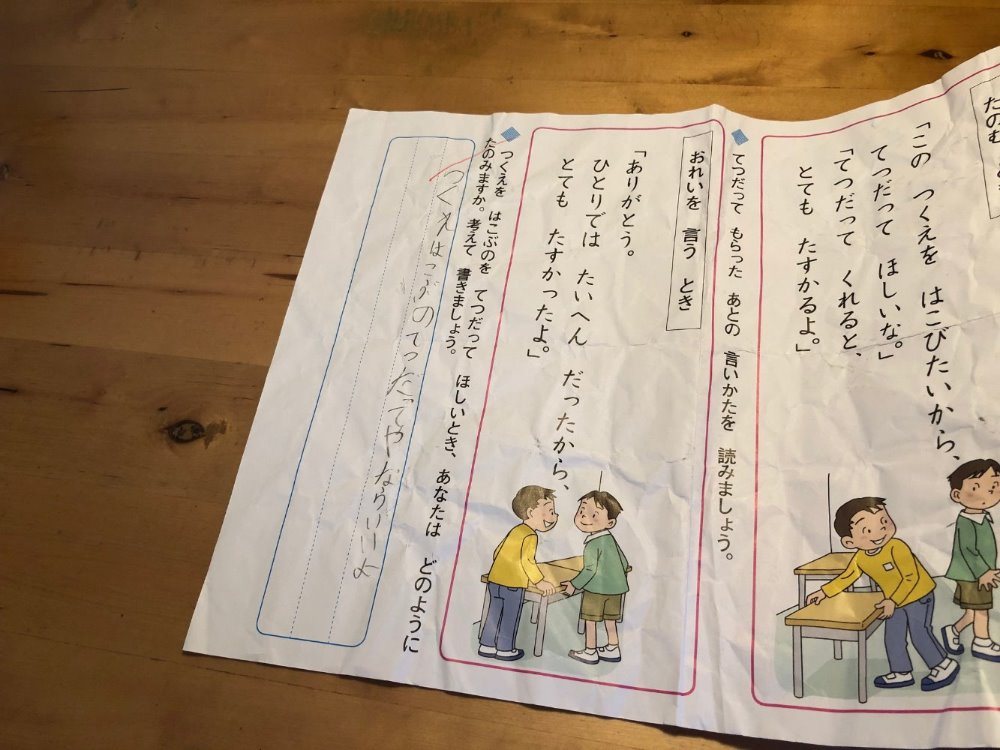 たのむ
「この つくえを はこびたいから、
てつだって ほしいな。」
「てつだって くれると、
とても たすかるよ。」
てつだって もらった あとの 言いかたを 読みましょう。
おれいを 言う とき
「ありがとう。
ひとりでは たいへん だったから、
とても たすかったよ。」
つくえを はこぶのを てつだって ほしいとき、あなたは どのように
たのみますか。考えて 書きましょう。
つくえはこぶのてつだってやーならいいよ